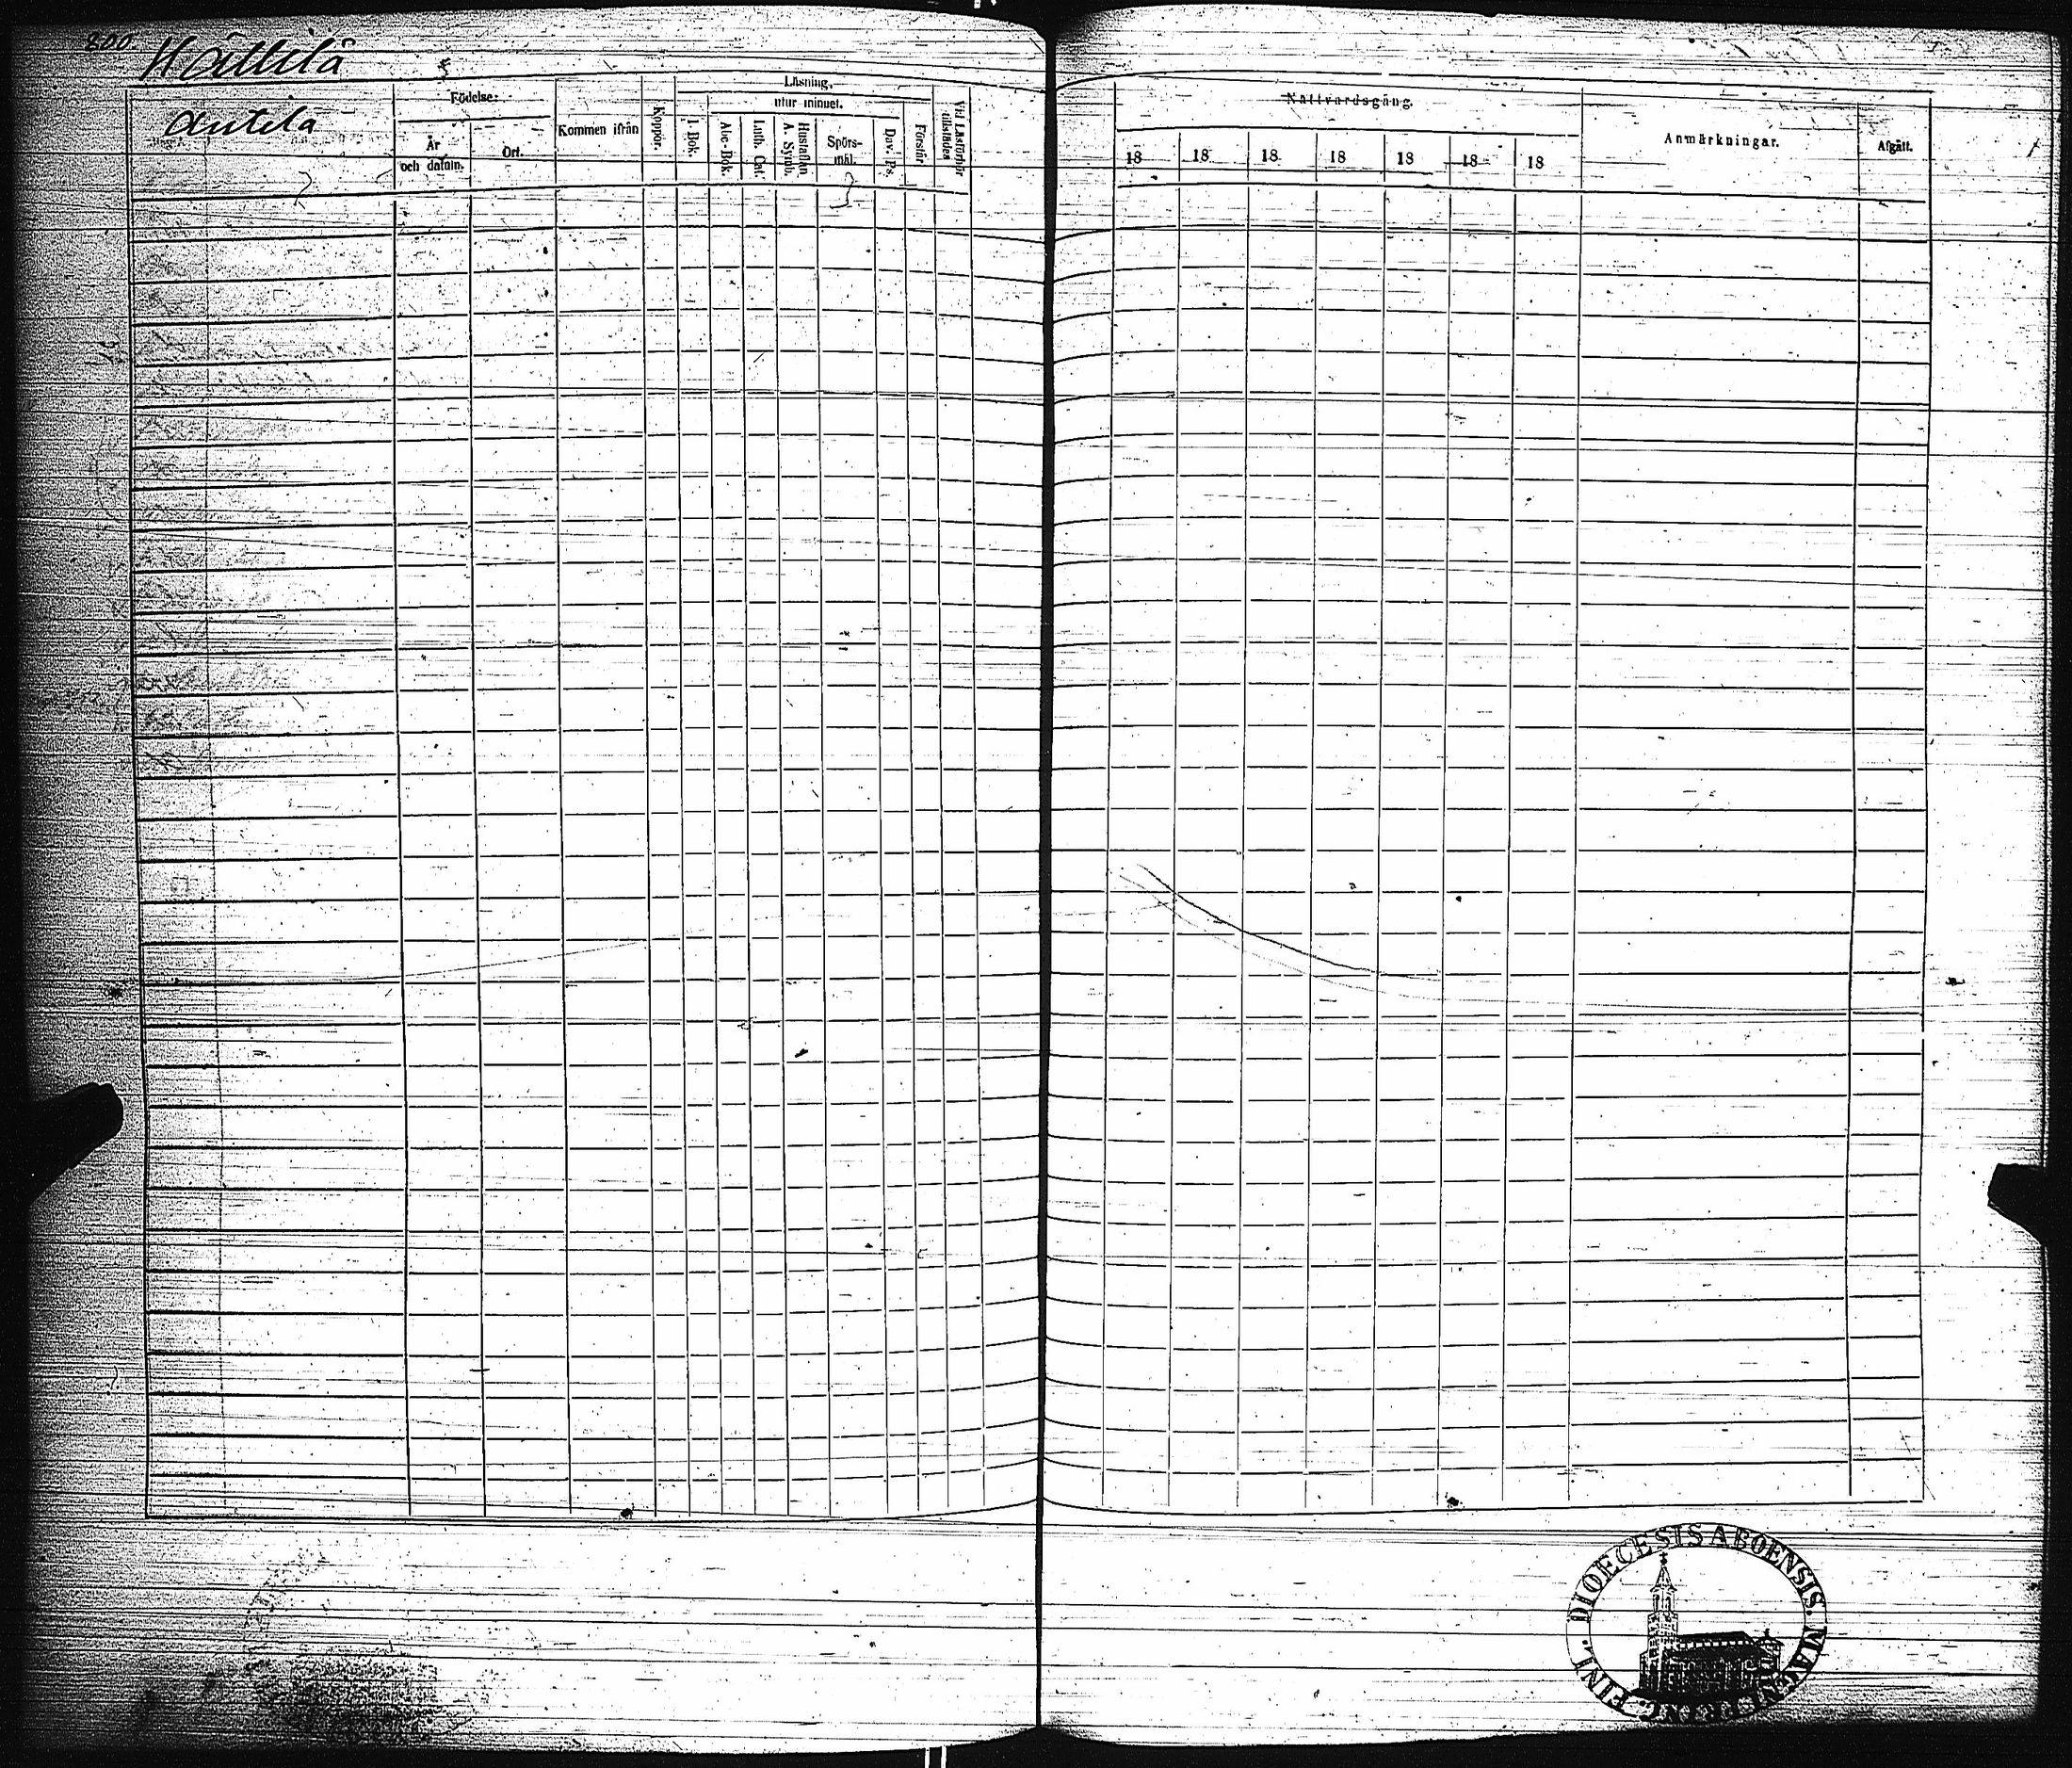 800
Källilä
Antila
Födelse:
År
och datum.
Ort.
Kommen ifrån
Koppor.
Läsning,
utur minnet.
I. Bok.
Abc-Bok.
Luth. Cat.
Hustaflan
A. Symb.
Spörs-
mål.
Dav. Ps.
Förstår
Vid Läsförhör
tillstädes
Nattvardsgång.
18 18 18 18 18 18 18
Anmärkningar.
Afgått.
DIOECESIS ABOENSIS. MAGNI PRINC. FINL.